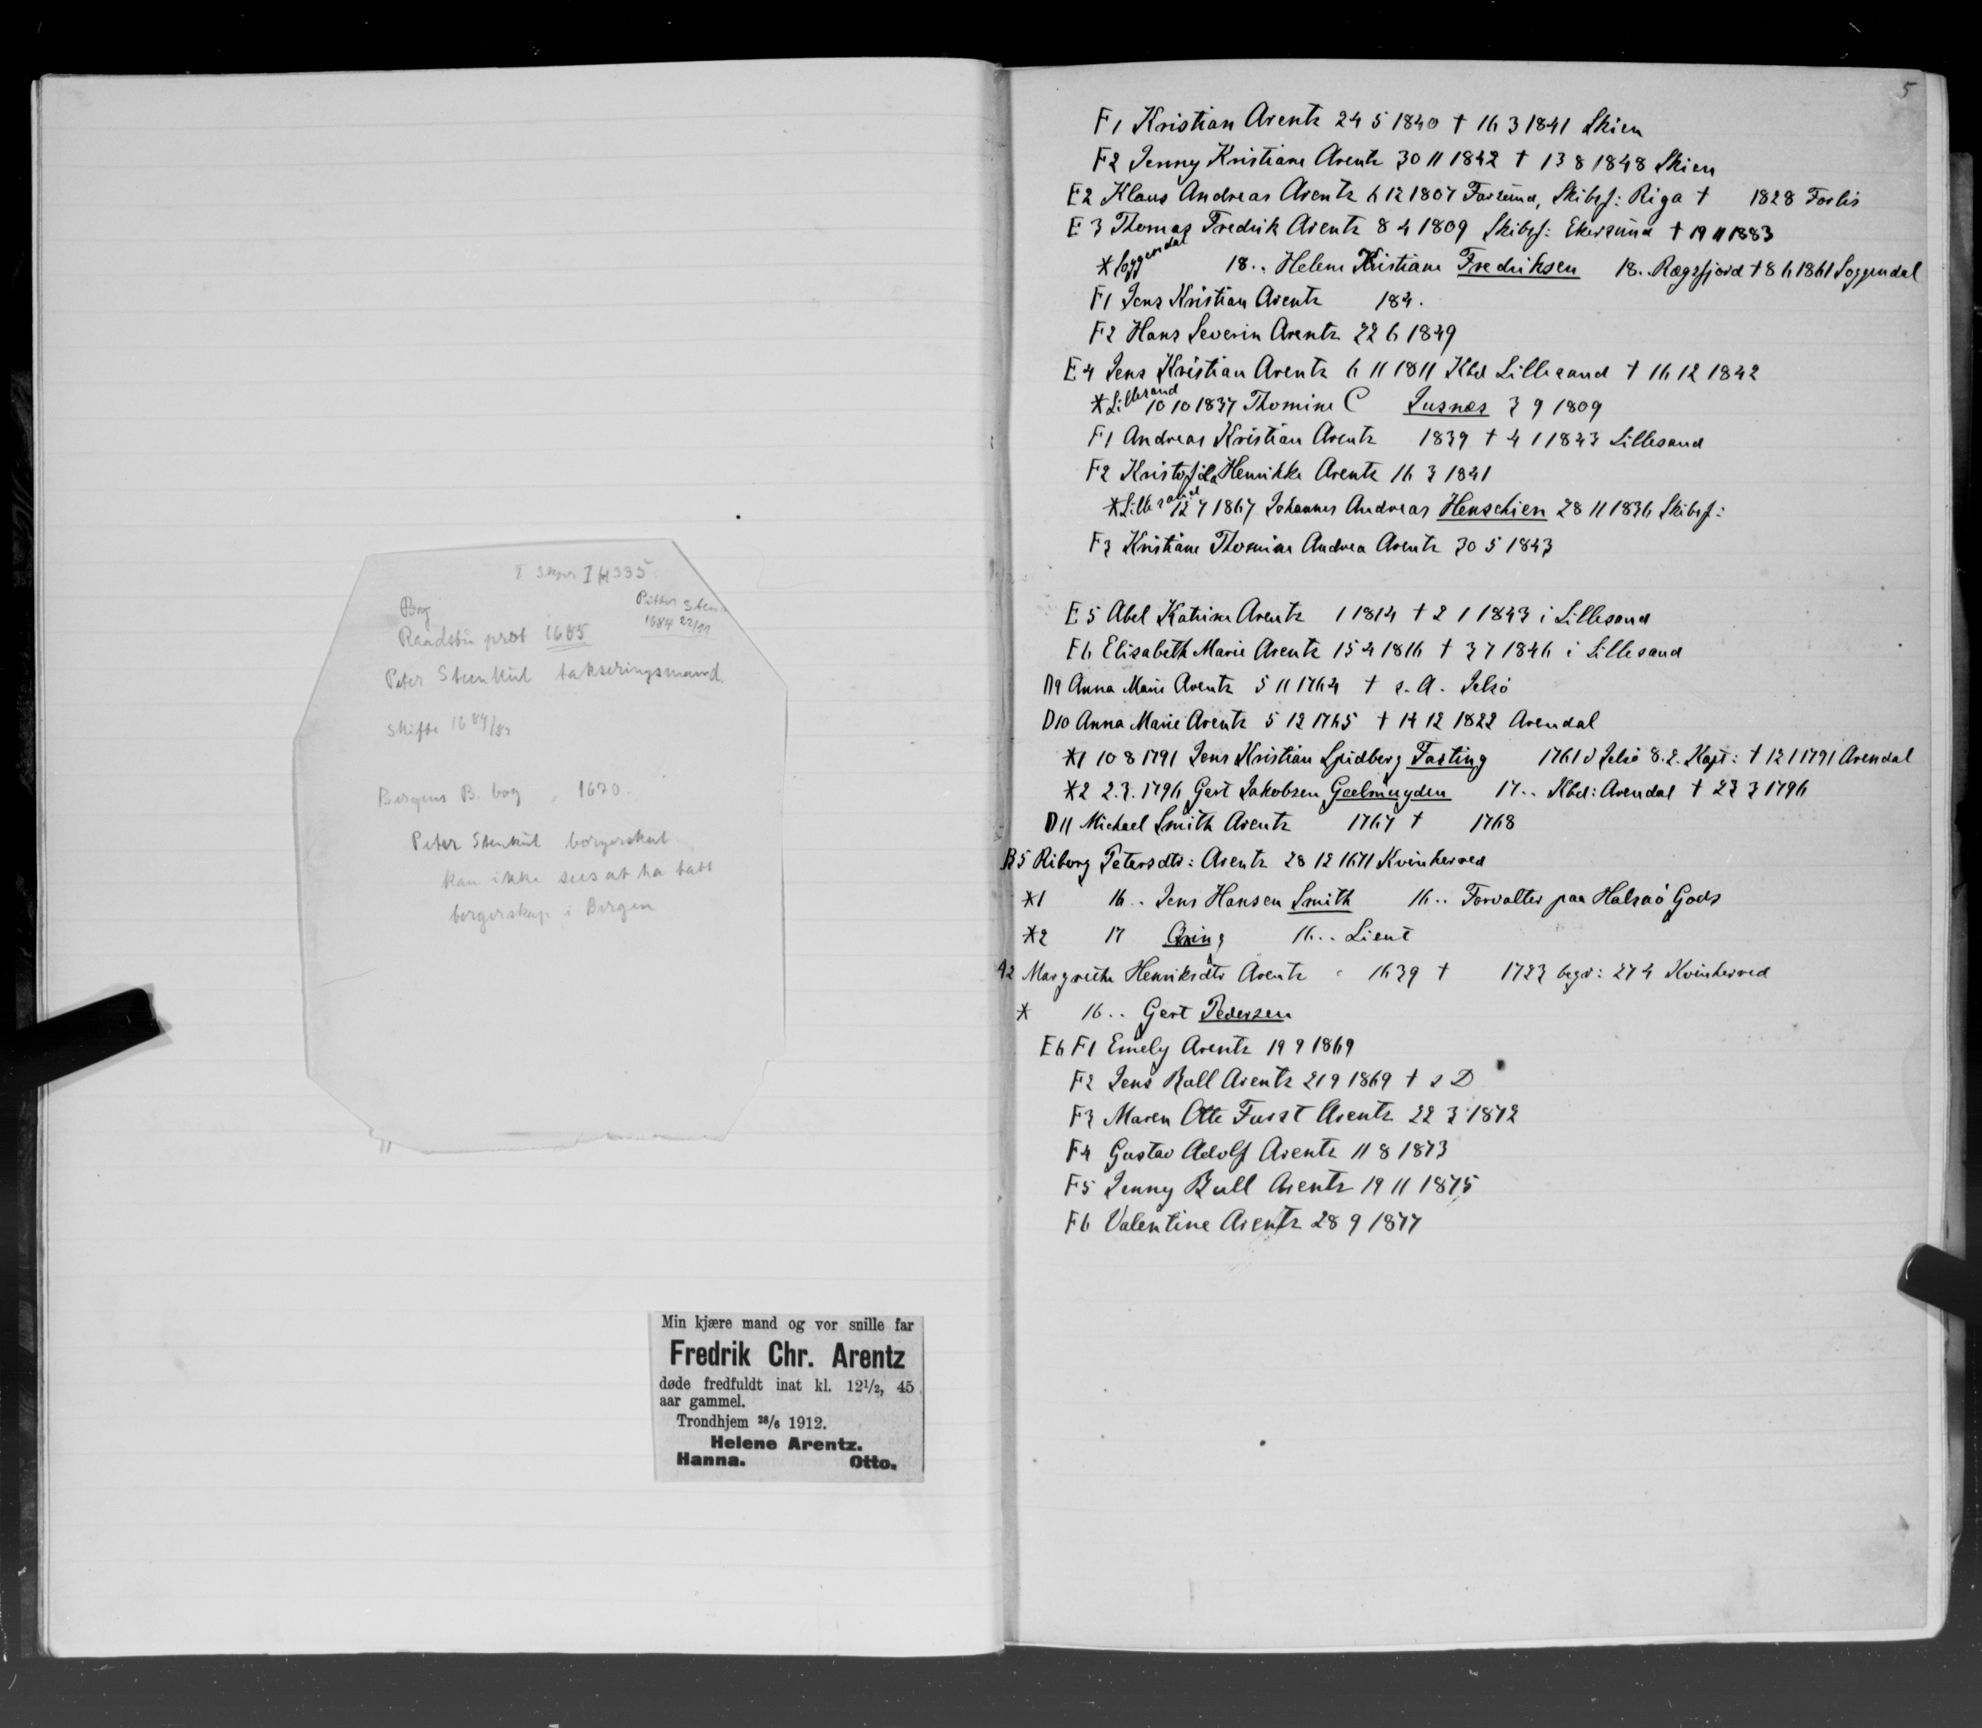 I H 335
Brg
Raadstu prot 1685
Pitter Sten
1684 22/11
Peter Steenkul takseringsmand.
Skifte 1684/89
Bergens B. bog , 1670.
Peter Stenkul borgerskat
kan ikke sees at ha tatt
borgerskap i Bergen
Min kjære mand og vor snille far
Fredrik Chr. Arentz
døde fredfuldt inat kl. 12½, 45
aar gammel.
Trondhjem 28/6 1912.
Helene Arentz.
Hanna. Otto.
5
F1 Kristian Arentz 24 5 1840 † 16 3 1841 Skien
F2 Jenny Kristiane Arentz 30 11 1842 † 13 8 1848 Skien
E2 Klaus Andreas Arentz 6 12 1807 Farsund, Skibsf: Riga † 1828 Forlis
E3 Thomas Fredrik Arentz 8 4 1809 Skibsf: Ekersund † 19 11 1883
* Soggendal 18.. Helene Kristiane Fredriksen 18.. Rægefjord † 8 6 1861 Soggendal
F1 Jens Kristian Arentz 184.
F2 Hans Severin Arentz 22 6 1849
E4 Jens Kristian Arentz 6 11 1811 Kbd Lillesand † 16 12 1842
* Lillesand 10 10 1837 Thomine C Jusnæs 3 9 1809
F1 Andreas Kristian Arentz 1839 † 4 1 1843 Lillesand
F2 Kristofila Henrikke Arentz 16 3 1841
* Lillesand 12 7 1867 Johannes Andreas Henschien 28 11 1836 Skibsf:
F3 Kristiane Thomine Andrea Arentz 30 5 1843
E5 Abel Katrine Arentz 1 1814 † 2 1 1843 i Lillesand
E6 Elisabeth Marie Arentz 15 4 1816 † 3 7 1846 i Lillesand
D9 Anna Marie Arentz 5 11 1764 † s. A. Jelsø
D10 Anna Marie Arentz 5 12 1765 † 14 12 1822 Arendal
*1 10 8 1791 Jens Kristian Spidberg Fasting 1761 i Jelsø S. L. Kapt: † 12 1 1791 Arendal
*2 2.3.1796 Gert Jakobsen Geelmuyden 17.. Kbd: Arendal † 23 3 1796
D11 Michael Smith Arentz 1767 † 1768
B5 Riborg Petersdtr: Arentz 28 12 1671 Kvinherred
*1 16.. Jens Hansen Smith 16.. Forvalter paa Halsnö Gods
*2 17 16.. Lieut
A2 Margrethe Henriksdtr Arentz c 1639 † 1723 begr: 27 4 Kvinherred
* 16.. Gert Pedersen
E6 F1 Emely Arentz 19 9 1869
F2 Jens Bull Arentz 21 9 1869 † s D
F3 Maren Otte Furst Arentz 22 3 1872
F4 Gustav Adolf Arentz 11 8 1873
F5 Jenny Bull Arentz 19 11 1875
F6 Valentine Arentz 28 9 1877